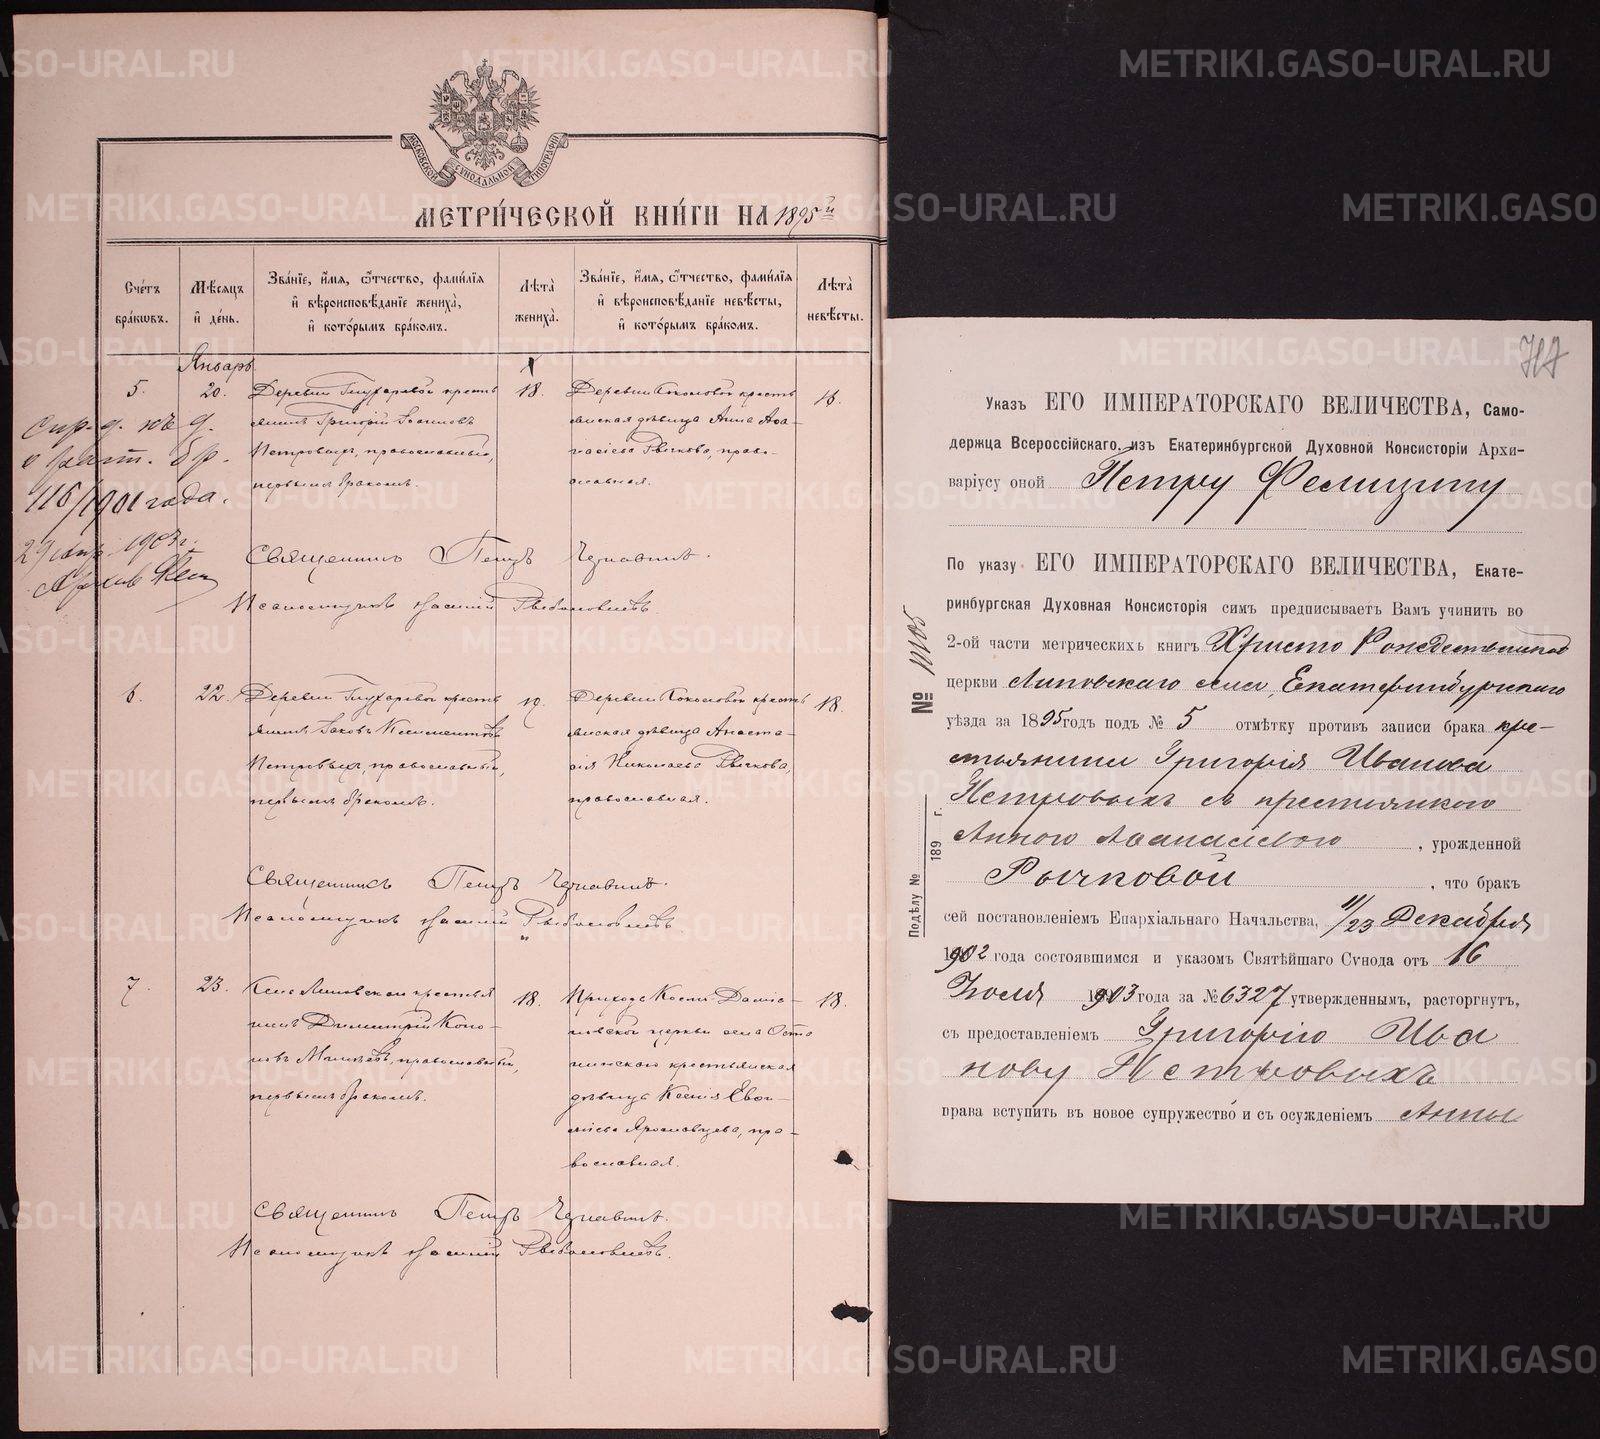 МОСКОВСКОЙ СУНОДАЛЬНОЙ ТИПОГРАФІИ
МЕТРИ́ЧЕСКОЙ КНИ́ГИ НА 1895 й
Сче́тъ бра́кѡвъ.
Мѣ́сяцъ и҆ де́нь.
Зва́нїе, и҆́мѧ, ѻ҆́тчество, фами́лїѧ
и҆ вѣроисповѣ́данїе жениха̀,
и҆ кото́рымъ бра́комъ.
Лѣта̀ жениха̀.
Зва́нїе, и҆́мѧ, ѻ҆́тчество, фами́лїѧ
и҆ вѣроисповѣ́данїе невѣ́сты,
и҆ кото́рымъ бра́комъ.
Лѣта̀ невѣ́сты.
Январь
5.
20.
Деревни Глухаревой кресть
янинъ Григорій Іоанновъ
Петровыхъ, православный,
первымъ бракомъ.
18.
Деревни Коколовой кресть
янская дѣвица Анна Аѳа-
насіева Рычкова, право-
славная.
о раст. бр.
116/1901 года.
1903 г.
Священникъ Петръ
Псаломщикъ
6.
22.
Деревни Глухаревой кресть
янинъ Іаковъ Климентовъ
Петровыхъ, православный,
первымъ бракомъ.
19.
Деревни Коколовой кресть
янская дѣвица Анаста-
сія Николаева Рычкова,
православная.
18.
Священникъ Петръ
Псаломщикъ
7.
23.
Села Липовскаго крестья
нинъ Димитрій Коно-
новъ православный,
первымъ бракомъ.
18.
Прихода Косми-Даміа-
новской церкви села
крестьянская
дѣвица Ксенія
Ярославцева, пра-
вославная.
18.
Священникъ Петръ
Псаломщикъ
Указъ ЕГО ИМПЕРАТОРСКАГО ВЕЛИЧЕСТВА, Само-
держца Всероссійскаго, изъ Екатеринбургской Духовной Консисторіи Архи-
варіусу оной Петру Фелицину
По указу ЕГО ИМПЕРАТОРСКАГО ВЕЛИЧЕСТВА, Екате-
ринбургская Духовная Консисторія симъ предписываетъ Вамъ учинить во
2-ой части метрическихъ книгъ Христо Рождественской
церкви Липовскаго села, Екатеринбургскаго
уѣзда за 1895 годъ подъ № 5 отмѣтку противъ записи брака кре-
стьянина Григорія Иванова
Петровыхъ съ крестьянкою
Анною Аѳанасьевою, урожденной
Рычковой, что бракъ
сей постановленіемъ Епархіальнаго Начальства, 11/23 Декабря
1902 года состоявшимся и указомъ Святѣйшаго Сѵнода отъ 16
Іюля 1903 года за № 6327 утвержденнымъ, расторгнутъ,
съ предоставленіемъ Григорію Ива
нову Петровыхъ
права вступить въ новое супружество и съ осужденіемъ Анны
№
Подѣлу №
189 г.
METRIKI.GASO-URAL.RU